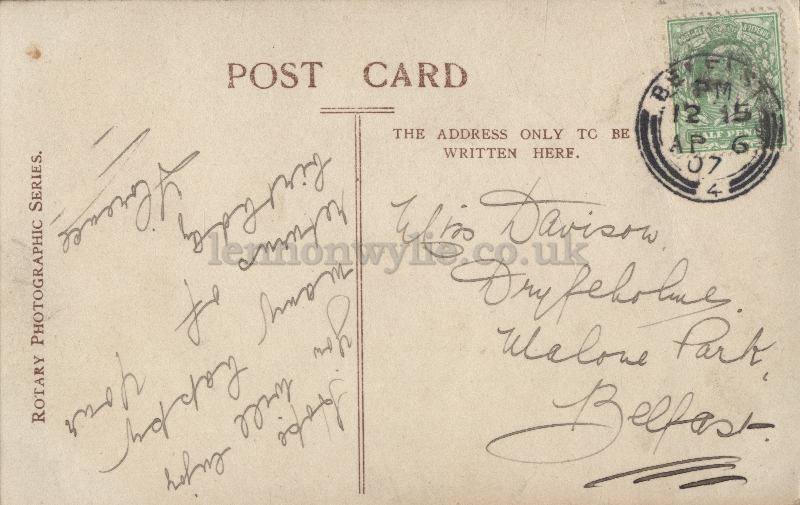 POST CARD
THE ADDRESS ONLY TO BE
WRITTEN HERE.
ROTARY PHOTOGRAPHIC SERIES.
Hope you will enjoy
many happy
returns of your
birthday
Florence
Miss Davison,
Dryfeholme,
Malone Park,
Belfast.
BELFAST
PM
12 15
AP 6
07
4
HALF PENNY
lennonwylie.co.uk